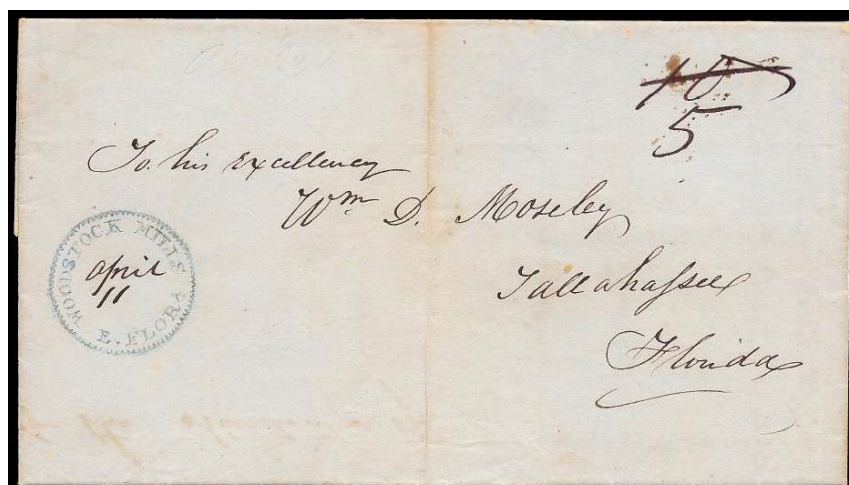 10
5
To his Excellency
Wm D. Moseley
Tallahassee
Florida
WOODSTOCK MILLS
E. FLORA
April
11